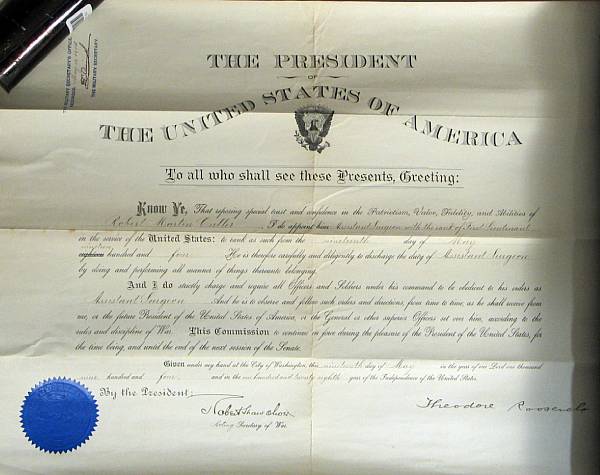 THE MILITARY SECRETARY'S OFFICE,
THE MILITARY SECRETARY.
THE PRESIDENT
OF
THE UNITED STATES OF AMERICA
To all who shall see these Presents, Greeting:
Know Ye, That reposing special trust and confidence in the Patriotism, Valor, Fidelity, and Abilities of
Robert Martin Culler, I do appoint him Assistant Surgeon with the rank of First Lieutenant
in the service of the United States: to rank as such from the nineteenth day of May
nineteen
eighteen hundred and four. He is therefore carefully and diligently to discharge the duty of Assistant Surgeon
by doing and performing all manner of things thereunto belonging.
And I do strictly charge and require all Officers and Soldiers under his command to be obedient to his orders as
Assistant Surgeon. And he is to observe and follow such orders and directions, from time to time, as he shall receive from
me, or the future President of the United States of America, or the General or other superior Officers set over him, according to the
rules and discipline of War. This Commission to continue in force during the pleasure of the President of the United States, for
the time being, and until the end of the next session of the Senate.
Given under my hand at the City of Washington, this nineteenth day of May in the year of our Lord one thousand
nine hundred and four and in the one hundred and twenty eighth year of the Independence of the United States.
By the President:
Theodore Roosevelt
Robert Shaw Oliver
Acting Secretary of War.